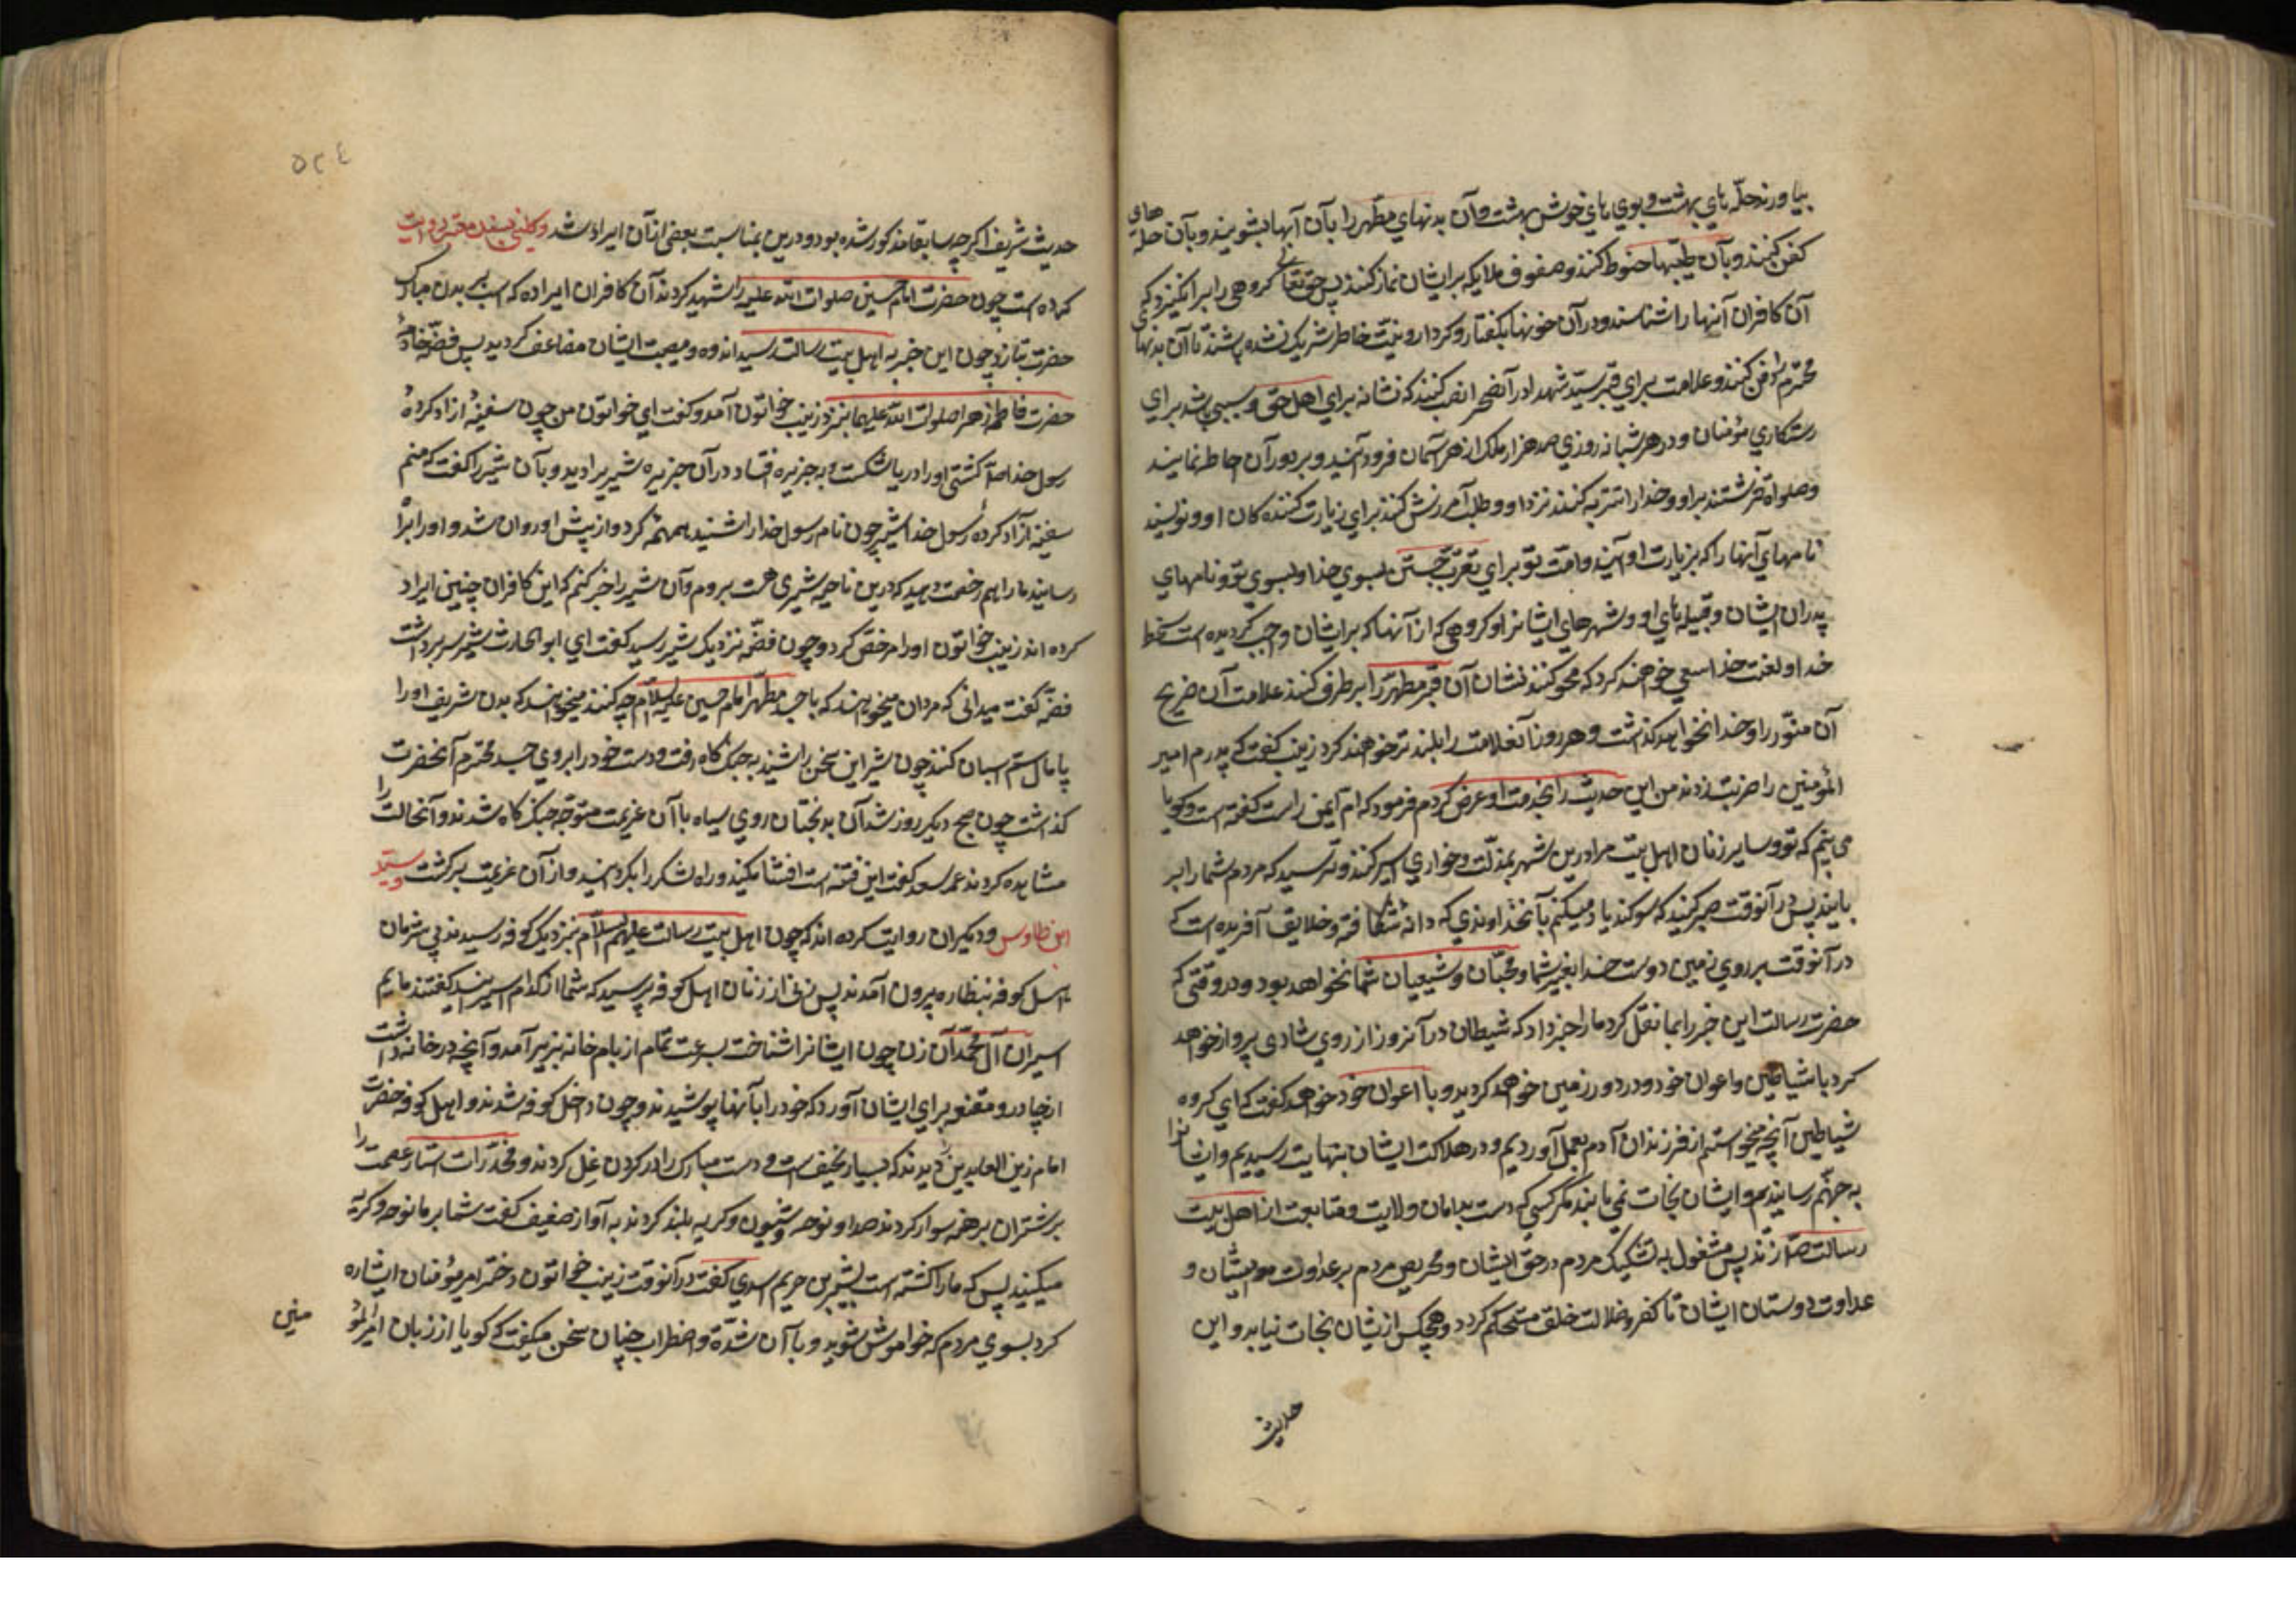 بیاورند حلّه‌های بهشت و بوی‌های خوش بهشت و آن بدنهای مطهر را بآن آبها بشویند و بآن حلّه
های
کفن کنند و بآن طیبها حنوط کنند و صفوف ملایکه بر ایشان نماز کنند پس حق تعالی گروهی را برانگیزد که
آن کافران آنها را نشناسند و در آن خونها بگفتار و کردار و نیت خاطر شریک نشده باشند تا آن بدنهای
محترم را دفن کنند و علامت برای قبر سیّد شهدا در آن صحرا نصب کنند که نشانه برای اهل حق و سببی باشد برای
رستکاری مؤمنان و در هر شبانه روزی صد هزار ملک از هر آسمان فرود آیند و بر دور آن احاطه نمایند
و صلواة فرستند بر او و خدا را تنزیه کنند نزد او و طلب آمرزش کنند برای زیارت کننده کان او و نویسند
نامهای آنها را که بزیارت او آیند و امّت تو برای تقرب جستن بسوی خدا و بسوی تو و نامهای
پدران ایشان و قبیله‌های او و شهرهای ایشانرا و کروهی که از آنها که بر ایشان واجب کردیده است سخط
خدا و لعنت خدا سعی خواهند کرد که محو کنند نشان آن قبر مطهر را و بر طرف کنند علامت آن ضریح
آن منوّر را و خدا نخواهد گذاشت و هر روز آنعلامت را بلندتر خواهند کرد زینب گفت که پدرم امیر
المؤمنین را ضربت زدند من این حدیث را بخدمت او عرض کردم فرمود که ام ایمن راست گفته است و کویا
می بینم که تو و سایر زنان اهل بیت مرا در این شهر بمذلت و خواری اسیر کنند و ترسید که مردم شما را بر
بایند پس در آنوقت صبر کنید که سوکند یاد میکنم بآنخداوندی که دانه شکافته و خلایق آفریده است که
در آنوقت بر روی زمین دوست خدا بغیر شما و محبّان و شیعیان شما نخواهد بود و در وقتی که
حضرت رسالت این خبر را بما نقل کرد ما را خبر داد که شیطان در آنروز از روی شادی پرواز خواهد
کرد با شیاطین و اعوان خود و در دور زمین خواهد کردید و با اعوان خود خواهد گفت که ای کروه
شیاطین آنچه میخواستم از فرزندان آدم بعمل آوردیم و در هلاکت ایشان بنهایت رسیدیم و ایشانرا
به جهنّم رسانیدم و ایشان نجات نمی یابند مکر کسی که دست بدامان ولایت و متابعت از اهل بیت
رسالت زند پس مشغول به تشکیک مردم در حق ایشان و تحریص مردم بر عداوت ایشان و
عداوت دوستان ایشان تا کفر و ضلالت خلق مستحکم کردد و هیچکس از ایشان نجات نیابد و این
حدیث
٥٢٤
حدیث شریف اکرچه سابقا مذکور شده بود و در این بمناسبت بعضی از آن ایراد شد و کلینی بسند معتبر روایت
کرده است چون حضرت امام حسین صلوات الله علیه را شهید کردند آن کافران اراده که اسب بر بدن مبارک
حضرت بتازند چون این خبر به اهل بیت رسالت رسید اندوه و مصیبت ایشان مضاعف کردید پس فضّه خادمهٔ
حضرت فاطمه زهرا صلوات الله علیها بنزد زینب خواتون آمد و گفت ای خواتون من چون سفینهٔ ازاد کردهٔ
رسول خدا کشتی او را دریا شکست و به جزیره افتاد در آن جزیره شیریرا دید و بآن شیر گفت که منم
سفینه آزاد کردهٔ رسول خدا شیر چون نام رسول خدا را شنید همهمه کرد و از پیش او روان شد و او را براه
رسانید ما را هم رخصت دهید که در این ناحیه شیری هست بروم و آن شیر را خبر کنم که این کافران چنین اراده
کرده اند زینب خواتون او را مرخص کرد و چون فضّه نزدیک شیر رسید گفت ای ابو الحارث شیر سر برداشت
فضّه گفت میدانی که مردان میخواهند که با جسد مطهّر امام حسین علیه السلام چه کنند میخواهند که بدن شریف او را
پامال ستم اسبان کنند چون شیر این سخن را شنید به جنک کاه رفت و دست خود را بر روی جسد محترم آنحضرت
گذاشت چون صبح دیگر روز شد آن بدبختان روی سیاه با آن عزیمت متوجّه جنک کاه شدند و آنحالت را
مشاهده کردند عمر سعد گفت این فتنه است افشا مکنید و راه لشکر را بکردانید و از آن عزیمت برکشت و سیّد
ابن طاوس و دیگران روایت کرده اند که چون اهل بیت رسالت علیهم السلام بنزدیک کوفه رسیدند بی شرمان
اهل کوفه بنظاره بیرون آمدند پس زنی از زنان اهل کوفه پرسید که شما از کدام اسیرانید گفتند مائیم
اسیران آل محمّد آن زن چون ایشانرا شناخت بسرعت تمام از بام خانه بزیر آمد و آنچه در خانه داشت
از چادر و مقنعه برای ایشان آورد که خود را بآنها پوشیدند و چون داخل کوفه شدند و اهل کوفه حضرت
امام زین العابدین را دیدند که بسیار نحیف است و دست مبارک را در کردن غل کردند و مخدّرات استار عصمت را
بر شتران برهنه سوار کردند صدا و نوحه و شیون و کریه بلند کردند به آواز ضعیف گفت شما بر ما نوحه و کریه
میکنید پس که ما را کشته است بشیر بن حریم اسدی گفت در آنوقت زینب خواتون دختر امیر مؤمنان اشاره
کرد بسوی مردم که خواموش شوید و با آن شدّة و اضطراب چنان سخن میگفت که کویا از زبان امیر المؤ
منین